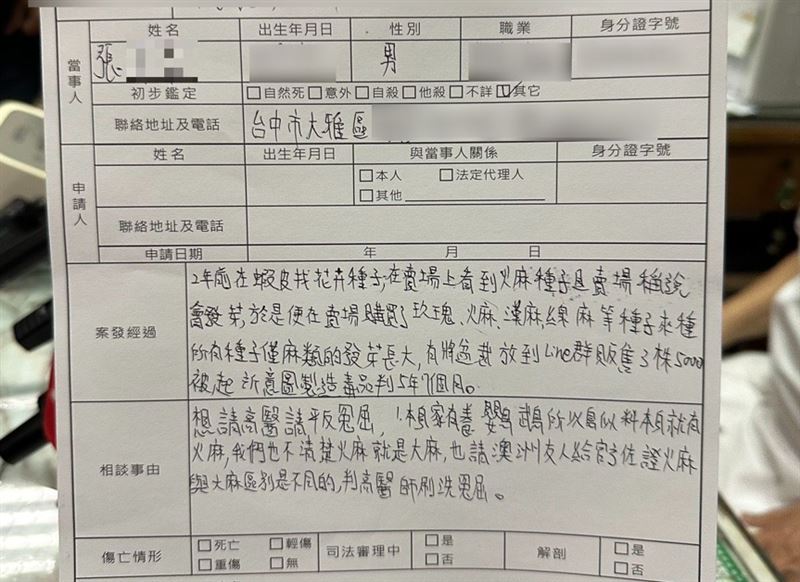 姓名 出生年月日 性別 職業 身分證字號
當事人
張 男
初步鑑定 □自然死□意外□自殺□他殺□不詳☑其它
聯絡地址及電話 台中市大雅區
申請人
姓名 出生年月日 與當事人關係 身分證字號
□本人 □法定代理人
□其他
聯絡地址及電話
申請日期 年 月 日
案發經過
2年前在蝦皮找花卉種子,在賣場上看到火麻種子且賣場稱說
會發芽,於是便在賣場購買了玫瑰、火麻、漢麻、線麻等種子來種
所有種子僅麻類的發芽長大,有將盆栽放到Line群販售了株5000
被起訴意圖製造毒品判5年7個月。
相談事由
想請高醫請平反冤屈,1.本家有養鸚鵡所以鳥飼料本身就有
火麻,我們也不清楚火麻就是大麻,也請澳洲友人給官子佐證火麻
與大麻區別是不同的,判高醫師刷洗冤屈。
傷亡情形 □死亡 □輕傷 司法審理中 □是 解剖 □是
□重傷 □無 □否 □否